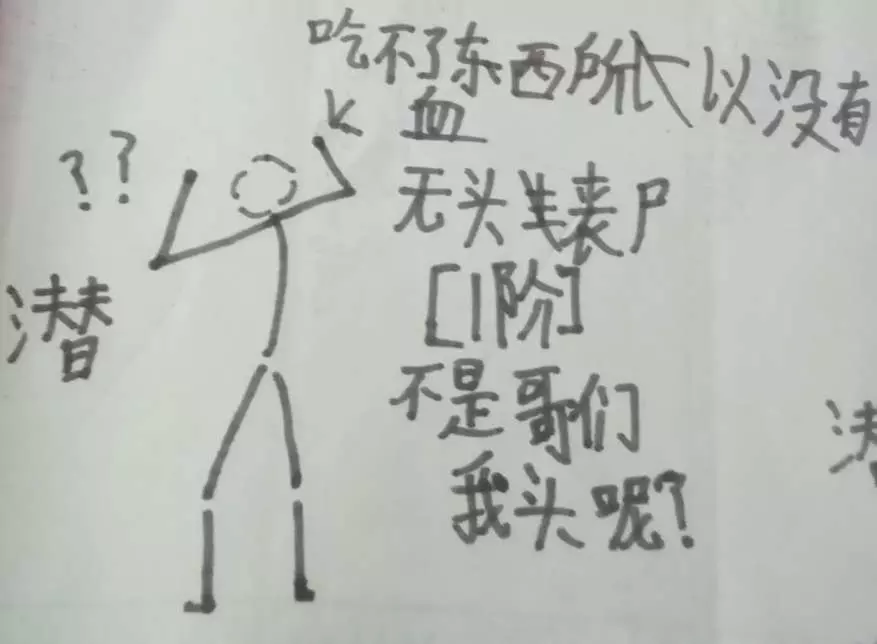 吃不了东西所以没有
血
??
无头丧尸
潜
[1阶]
不是哥们
我头呢?